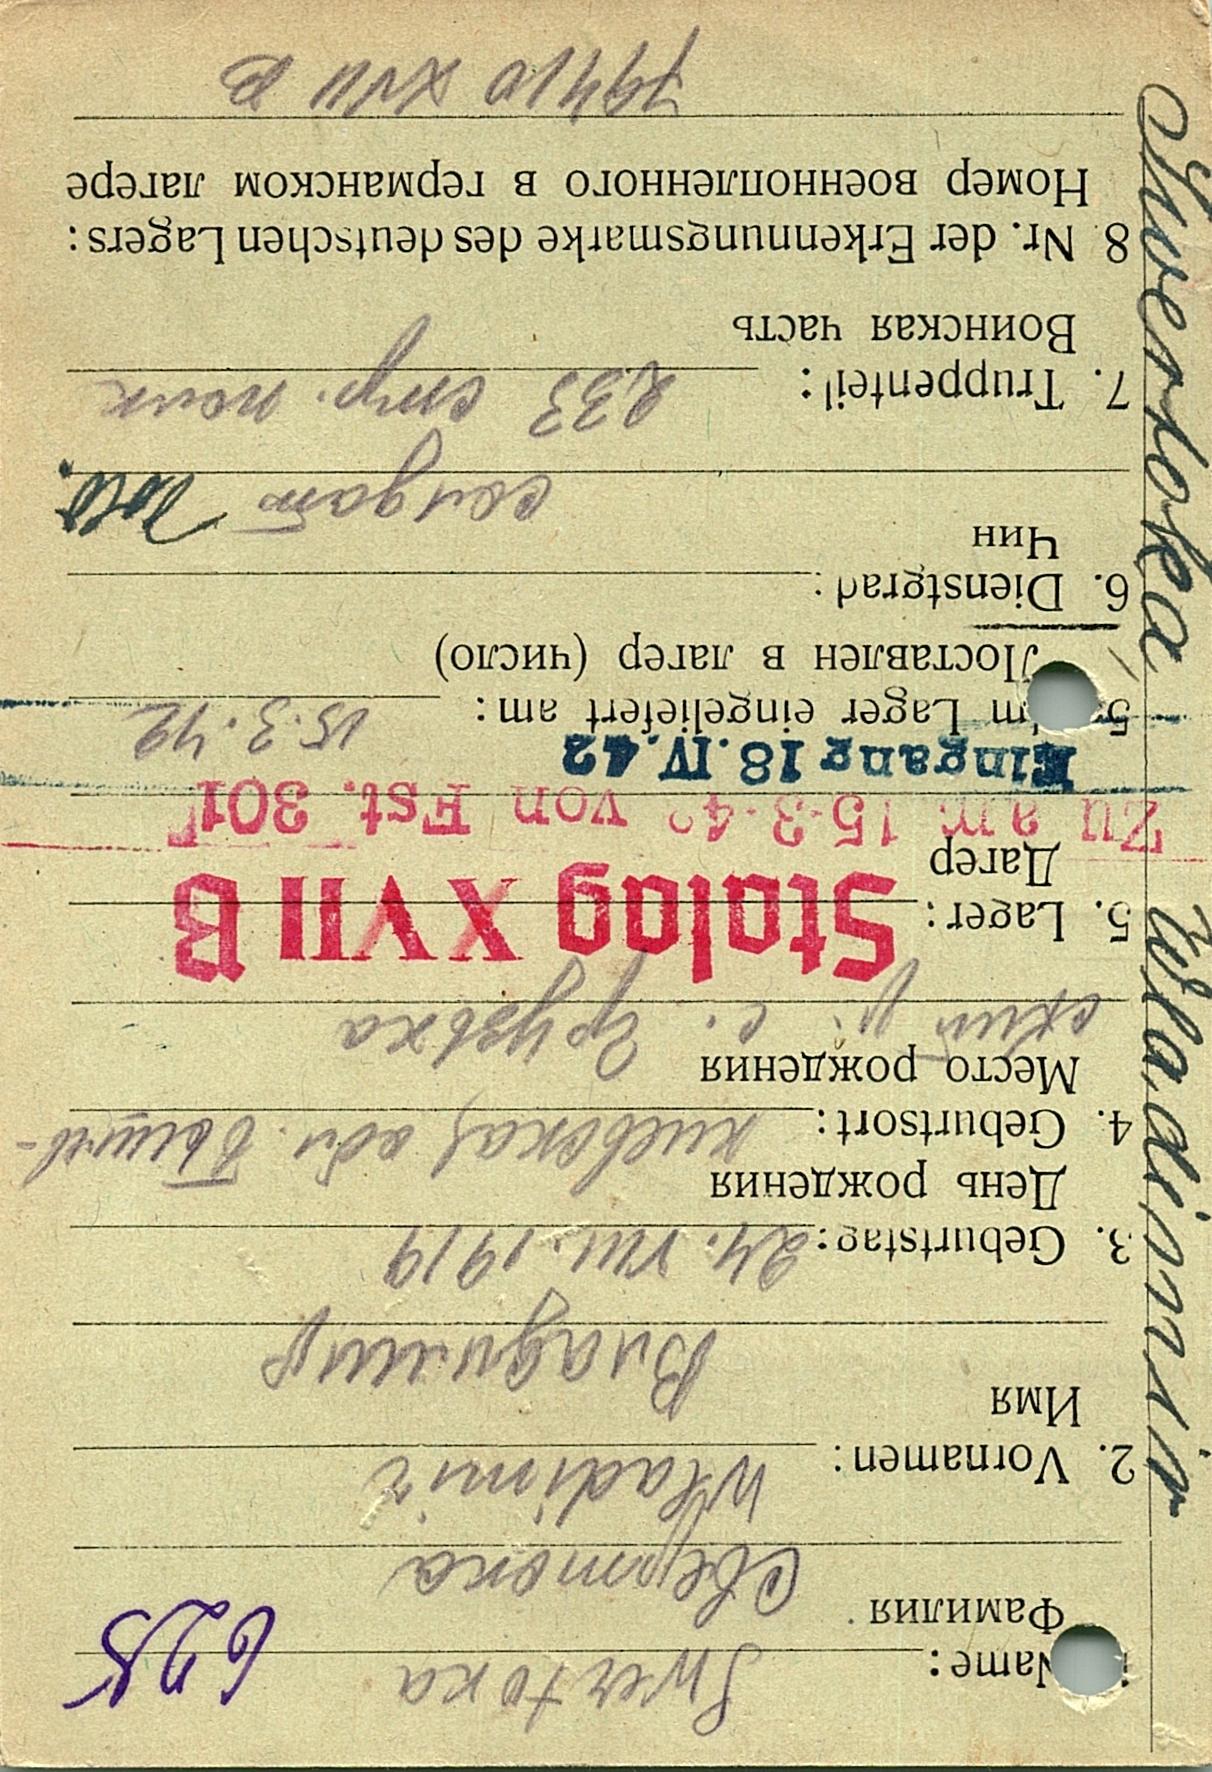 Swertoka Wladimir
1. Name: Swertoka
Фамилия Свертока
628
2. Vornamen: Wladimir
Имя
Владимир
3. Geburtstag: 24. VIII. 1919
День рождения
4. Geburtsort: киевская обл. Бышев-
Место рождения
ский р. с. Грузька
5. Lager: Stalag XVII B
Лагер
Zu am 15.3.42 von Fst. 301
Eingang 18. IV. 42
5 Im Lager eingeliefert am: 15.3.42
Поставлен в лагер (число)
6. Dienstgrad:
Чин
солдат
7. Truppenteil: 233 стр. полк
Воинская часть
8 Nr. der Erkennungsmarke des deutschen Lagers:
Номер военнопленного в германском лагере
XVII B